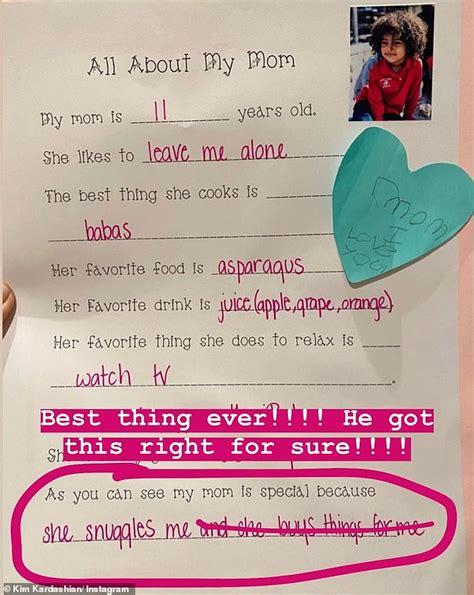 All About My Mom
My mom is 11 years old.
She likes to leave me alone
The best thing she cooks is
babas
Mom
I
Love
You
Her favorite food is asparagus
Her Favorite drink is juice (apple, grape, orange)
Her favorite thing she does to relax is
watch tv.
Best thing ever!!!! He got
this right for sure!!!!
Sh
As you can see my mom is special because
she snuggles me and she buys things for me
© Kim Kardashian/ Instagram